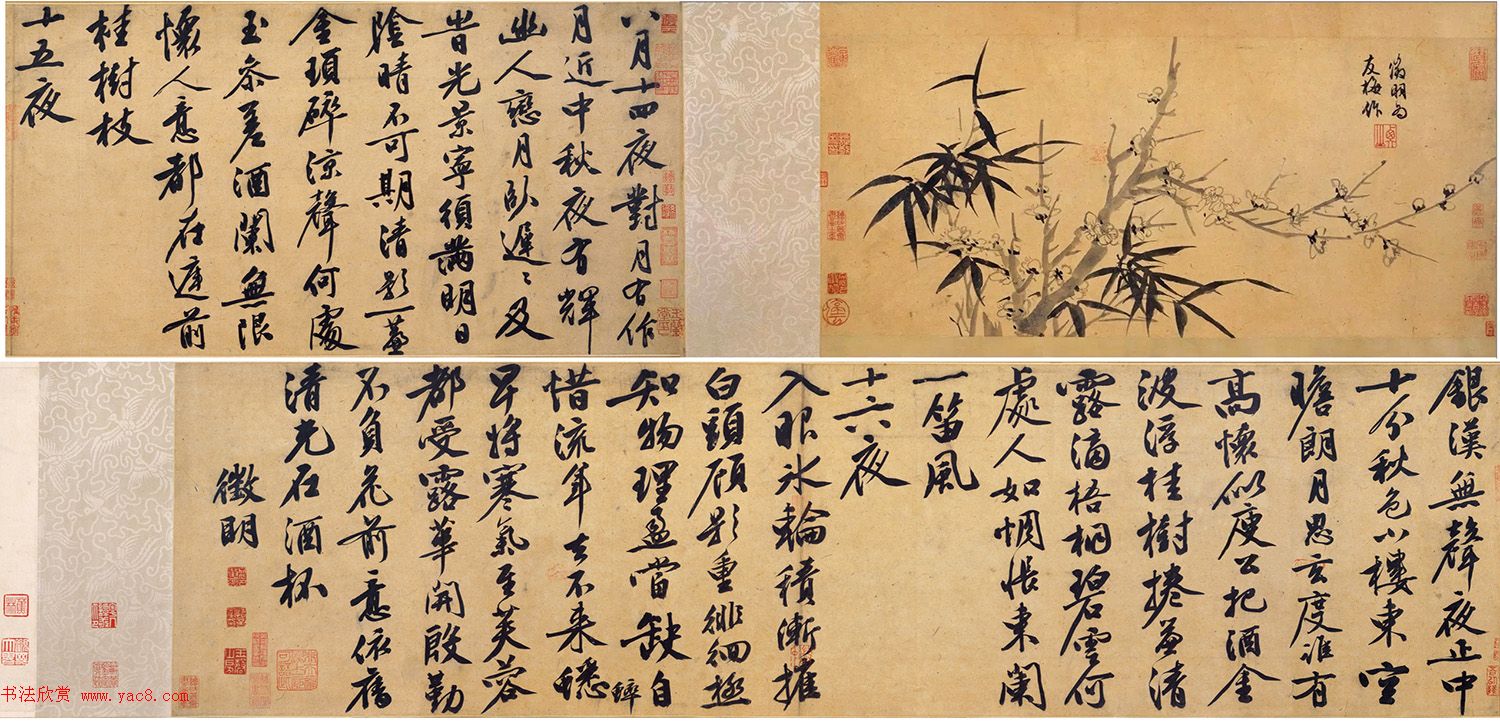 徵明為
友梅作
八月十四夜對月有作
月近中秋夜有輝
幽人戀月臥遲〻及
旹光景寧須滿明日
陰晴不可期清影一簾
金瑣碎涼聲何處
玉參差酒闌無限
懷人意都在庭前
桂樹枝
十五夜
銀漢無聲夜正中
十分秋色小樓東空
瞻朗月思玄度誰有
高懷似庾公把酒金
波浮桂樹捲簾清
露滴梧桐碧雲何
處人如惆悵東闌
一笛風
十六夜
入眼冰輪積漸摧
白頭顧影重徘徊極
知物理盈當缺自
惜流年去不來蟋
蟀
早將寒氣至芙蓉
都受露華開殷勤
不負花前意依舊
清光在酒杯
徵明
书法欣赏 www.yac8.com